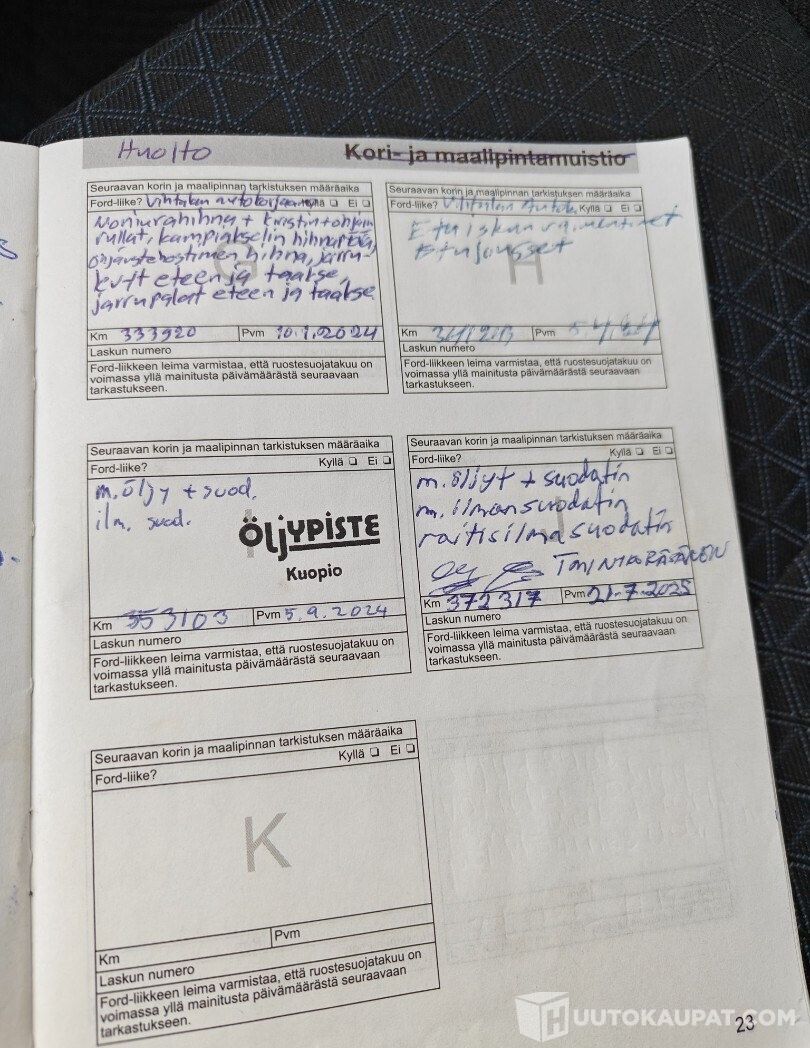 Huolto
Kori- ja maalipintamuistio
Seuraavan korin ja maalipinnan tarkistuksen määräaika
Ford-liike? Vihtalan autokorjaamo Kyllä Ei
Moniurahihna + kiristin + ohjain
rullat, kampiakselin hihnapyörä,
ohjaustehostimen hihna, jarru
levyt eteen ja taakse,
jarrupalat eteen ja taakse
G
Km 333920 Pvm 10.1.2024
Laskun numero
Ford-liikkeen leima varmistaa, että ruostesuojatakuu on
voimassa yllä mainitusta päivämäärästä seuraavaan
tarkastukseen.
Seuraavan korin ja maalipinnan tarkistuksen määräaika
Ford-liike? Vihtalan Kyllä Ei
Etuiskunvaimentimet
Etujouset
H
Km Pvm 5.4.24
Laskun numero
Ford-liikkeen leima varmistaa, että ruostesuojatakuu on
voimassa yllä mainitusta päivämäärästä seuraavaan
tarkastukseen.
Seuraavan korin ja maalipinnan tarkistuksen määräaika
Ford-liike? Kyllä Ei
m. öljy + suod.
ilm. suod.
ÖLJYPISTE
Kuopio
Km 353103 Pvm 5.9.2024
Laskun numero
Ford-liikkeen leima varmistaa, että ruostesuojatakuu on
voimassa yllä mainitusta päivämäärästä seuraavaan
tarkastukseen.
Seuraavan korin ja maalipinnan tarkistuksen määräaika
Ford-liike? Kyllä Ei
m. öljyt + suodatin
m. ilmansuodatin
raitisilmasuodatin
TMI NIKO RÄSÄNEN
Km 372317 Pvm 21.7.2025
Laskun numero
Ford-liikkeen leima varmistaa, että ruostesuojatakuu on
voimassa yllä mainitusta päivämäärästä seuraavaan
tarkastukseen.
Seuraavan korin ja maalipinnan tarkistuksen määräaika
Ford-liike? Kyllä Ei
K
Km Pvm
Laskun numero
Ford-liikkeen leima varmistaa, että ruostesuojatakuu on
voimassa yllä mainitusta päivämäärästä seuraavaan
tarkastukseen.
23
HUUTOKAUPAT.COM